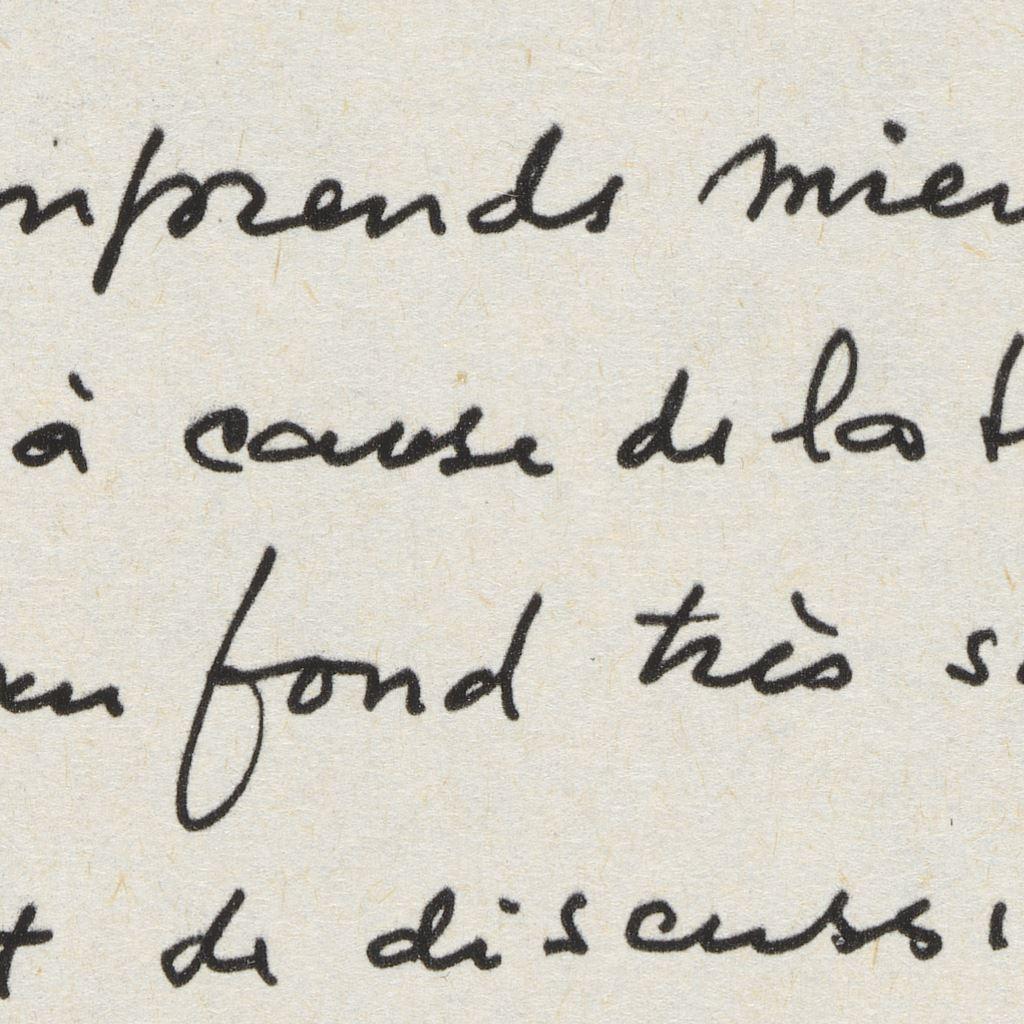 mprends mieu
à cause de la t
au fond très sa
t de discussi